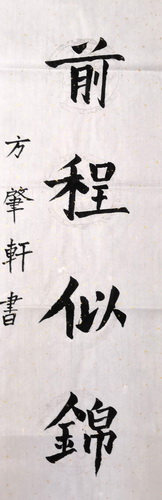 前程似錦
方肇軒書